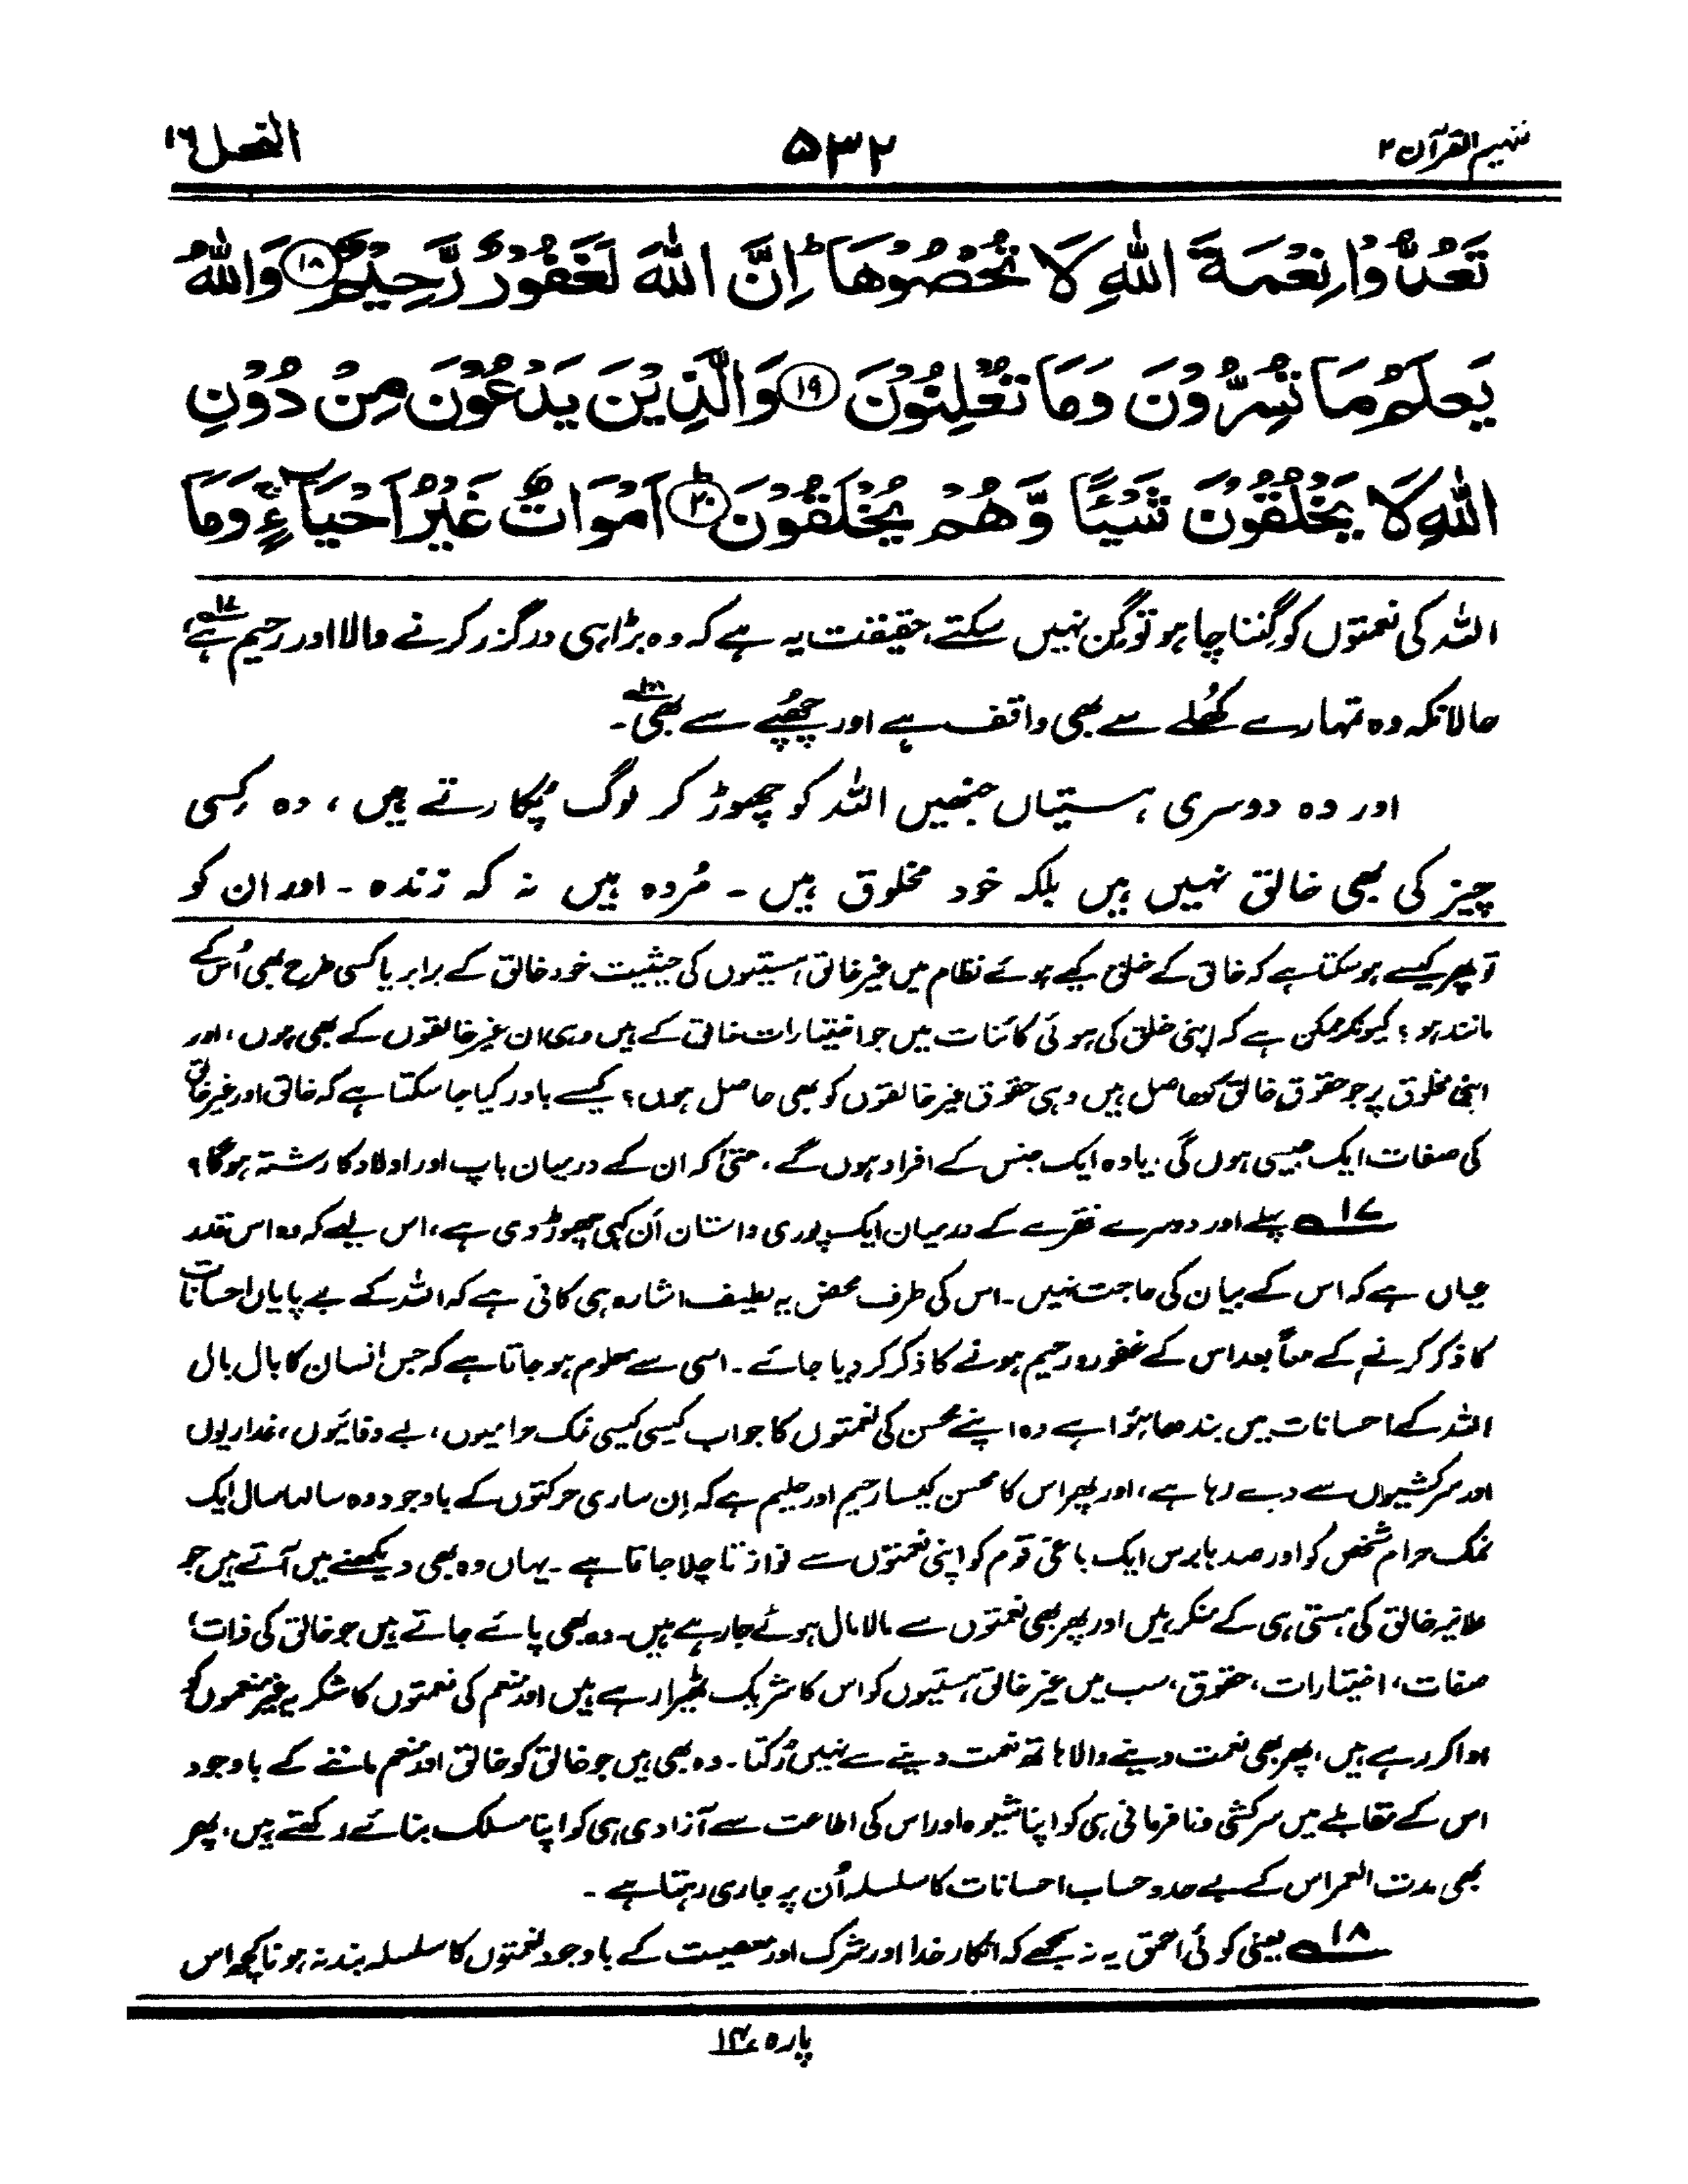 تفہیم القرآن ۲
۵۳۲
النحل ۱۶
تَعُدُّوْا نِعْمَةَ اللّٰهِ لَا تُحْصُوْهَا ؕ اِنَّ اللّٰهَ لَغَفُوْرٌ رَّحِيْمٌ ۱۸ وَاللّٰهُ
يَعْلَمُ مَا تُسِرُّوْنَ وَمَا تُعْلِنُوْنَ ۱۹ وَالَّذِيْنَ يَدْعُوْنَ مِنْ دُوْنِ
اللّٰهِ لَا يَخْلُقُوْنَ شَيْـًٔا وَّهُمْ يُخْلَقُوْنَ ؕ ۲۰ اَمْوَاتٌ غَيْرُ اَحْيَآءٍ ۚ وَمَا
اللہ کی نعمتوں کو گننا چاہو تو گِن نہیں سکتے، حقیقت یہ ہے کہ وہ بڑا ہی درگزر کرنے والا اور رحیم ہے،۱۷
حالانکہ وہ تمہارے کھُلے سے بھی واقف ہے اور چھُپے سے بھی۱۸۔
اور وہ دوسری ہستیاں جنھیں اللہ کو چھوڑ کر لوگ پُکارتے ہیں، وہ کِسی
چیز کی بھی خالق نہیں ہیں بلکہ خود مخلوق ہیں۔ مُردہ ہیں نہ کہ زندہ۔ اور ان کو
تو پھر کیسے ہو سکتا ہے کہ خالق کے خلق کیے ہوئے نظام میں غیر خالق ہستیوں کی حیثیت خود خالق کے برابر یا کسی طرح بھی اُس کے
مانند ہو؟ کیونکر ممکن ہے کہ اپنی خلق کی ہوئی کائنات میں جو اختیارات خالق کے ہیں وہی ان غیر خالقوں کے بھی ہوں، اور
اپنی مخلوق پر جو حقوق خالق کو حاصل ہیں وہی حقوق غیر خالقوں کو بھی حاصل ہوں؟ کیسے باور کیا جا سکتا ہے کہ خالق اور غیر خالق
کی صفات ایک جیسی ہوں گی، یا وہ ایک جنس کے افراد ہوں گے، حتیٰ کہ ان کے درمیان باپ اور اولاد کا رشتہ ہوگا؟
۱۷ پہلے اور دوسرے فقرے کے درمیان ایک پوری داستان اَن کہی چھوڑ دی ہے، اس لیے کہ وہ اس قدر
عیاں ہے کہ اس کے بیان کی حاجت نہیں۔ اس کی طرف محض یہ لطیف اشارہ ہی کافی ہے کہ اللہ کے بے پایاں احسانات
کا ذکر کرنے کے معاً بعد اس کے غفور و رحیم ہونے کا ذکر کر دیا جائے۔ اسی سے معلوم ہو جاتا ہے کہ جس انسان کا بال بال
اللہ کے احسانات میں بندھا ہُوا ہے وہ اپنے محسن کی نعمتوں کا جواب کیسی کیسی نمک حرامیوں، بے وفائیوں، غداریوں
اور سرکشیوں سے دے رہا ہے، اور پھر اس کا محسن کیسا رحیم اور حلیم ہے کہ اِن ساری حرکتوں کے باوجود وہ سالہا سال ایک
نمک حرام شخص کو اور صدہا برس ایک باغی قوم کو اپنی نعمتوں سے نوازتا چلا جاتا ہے۔ یہاں وہ بھی دیکھنے میں آتے ہیں جو
علانیہ خالق کی ہستی ہی کے منکر ہیں اور پھر بھی نعمتوں سے مالا مال ہوئے جا رہے ہیں۔ وہ بھی پائے جاتے ہیں جو خالق کی ذات،
صفات، اختیارات، حقوق، سب میں غیر خالق ہستیوں کو اس کا شریک ٹھیرا رہے ہیں اور منعم کی نعمتوں کا شکریہ غیر منعموں کو
ادا کر رہے ہیں، پھر بھی نعمت دینے والا ہاتھ نعمت دینے سے نہیں رُکتا۔ وہ بھی ہیں جو خالق کو خالق اور منعم ماننے کے باوجود
اس کے مقابلے میں سرکشی و نافرمانی ہی کو اپنا شیوہ اور اس کی اطاعت سے آزادی ہی کو اپنا مسلک بنائے رکھتے ہیں، پھر
بھی مدت العمر اس کے بے حد و حساب احسانات کا سلسلہ اُن پر جاری رہتا ہے۔
۱۸ یعنی کوئی احمق یہ نہ سمجھے کہ انکارِ خدا اور شرک اور معصیت کے باوجود نعمتوں کا سلسلہ بند نہ ہونا کچھ اس
پارہ ۱۴